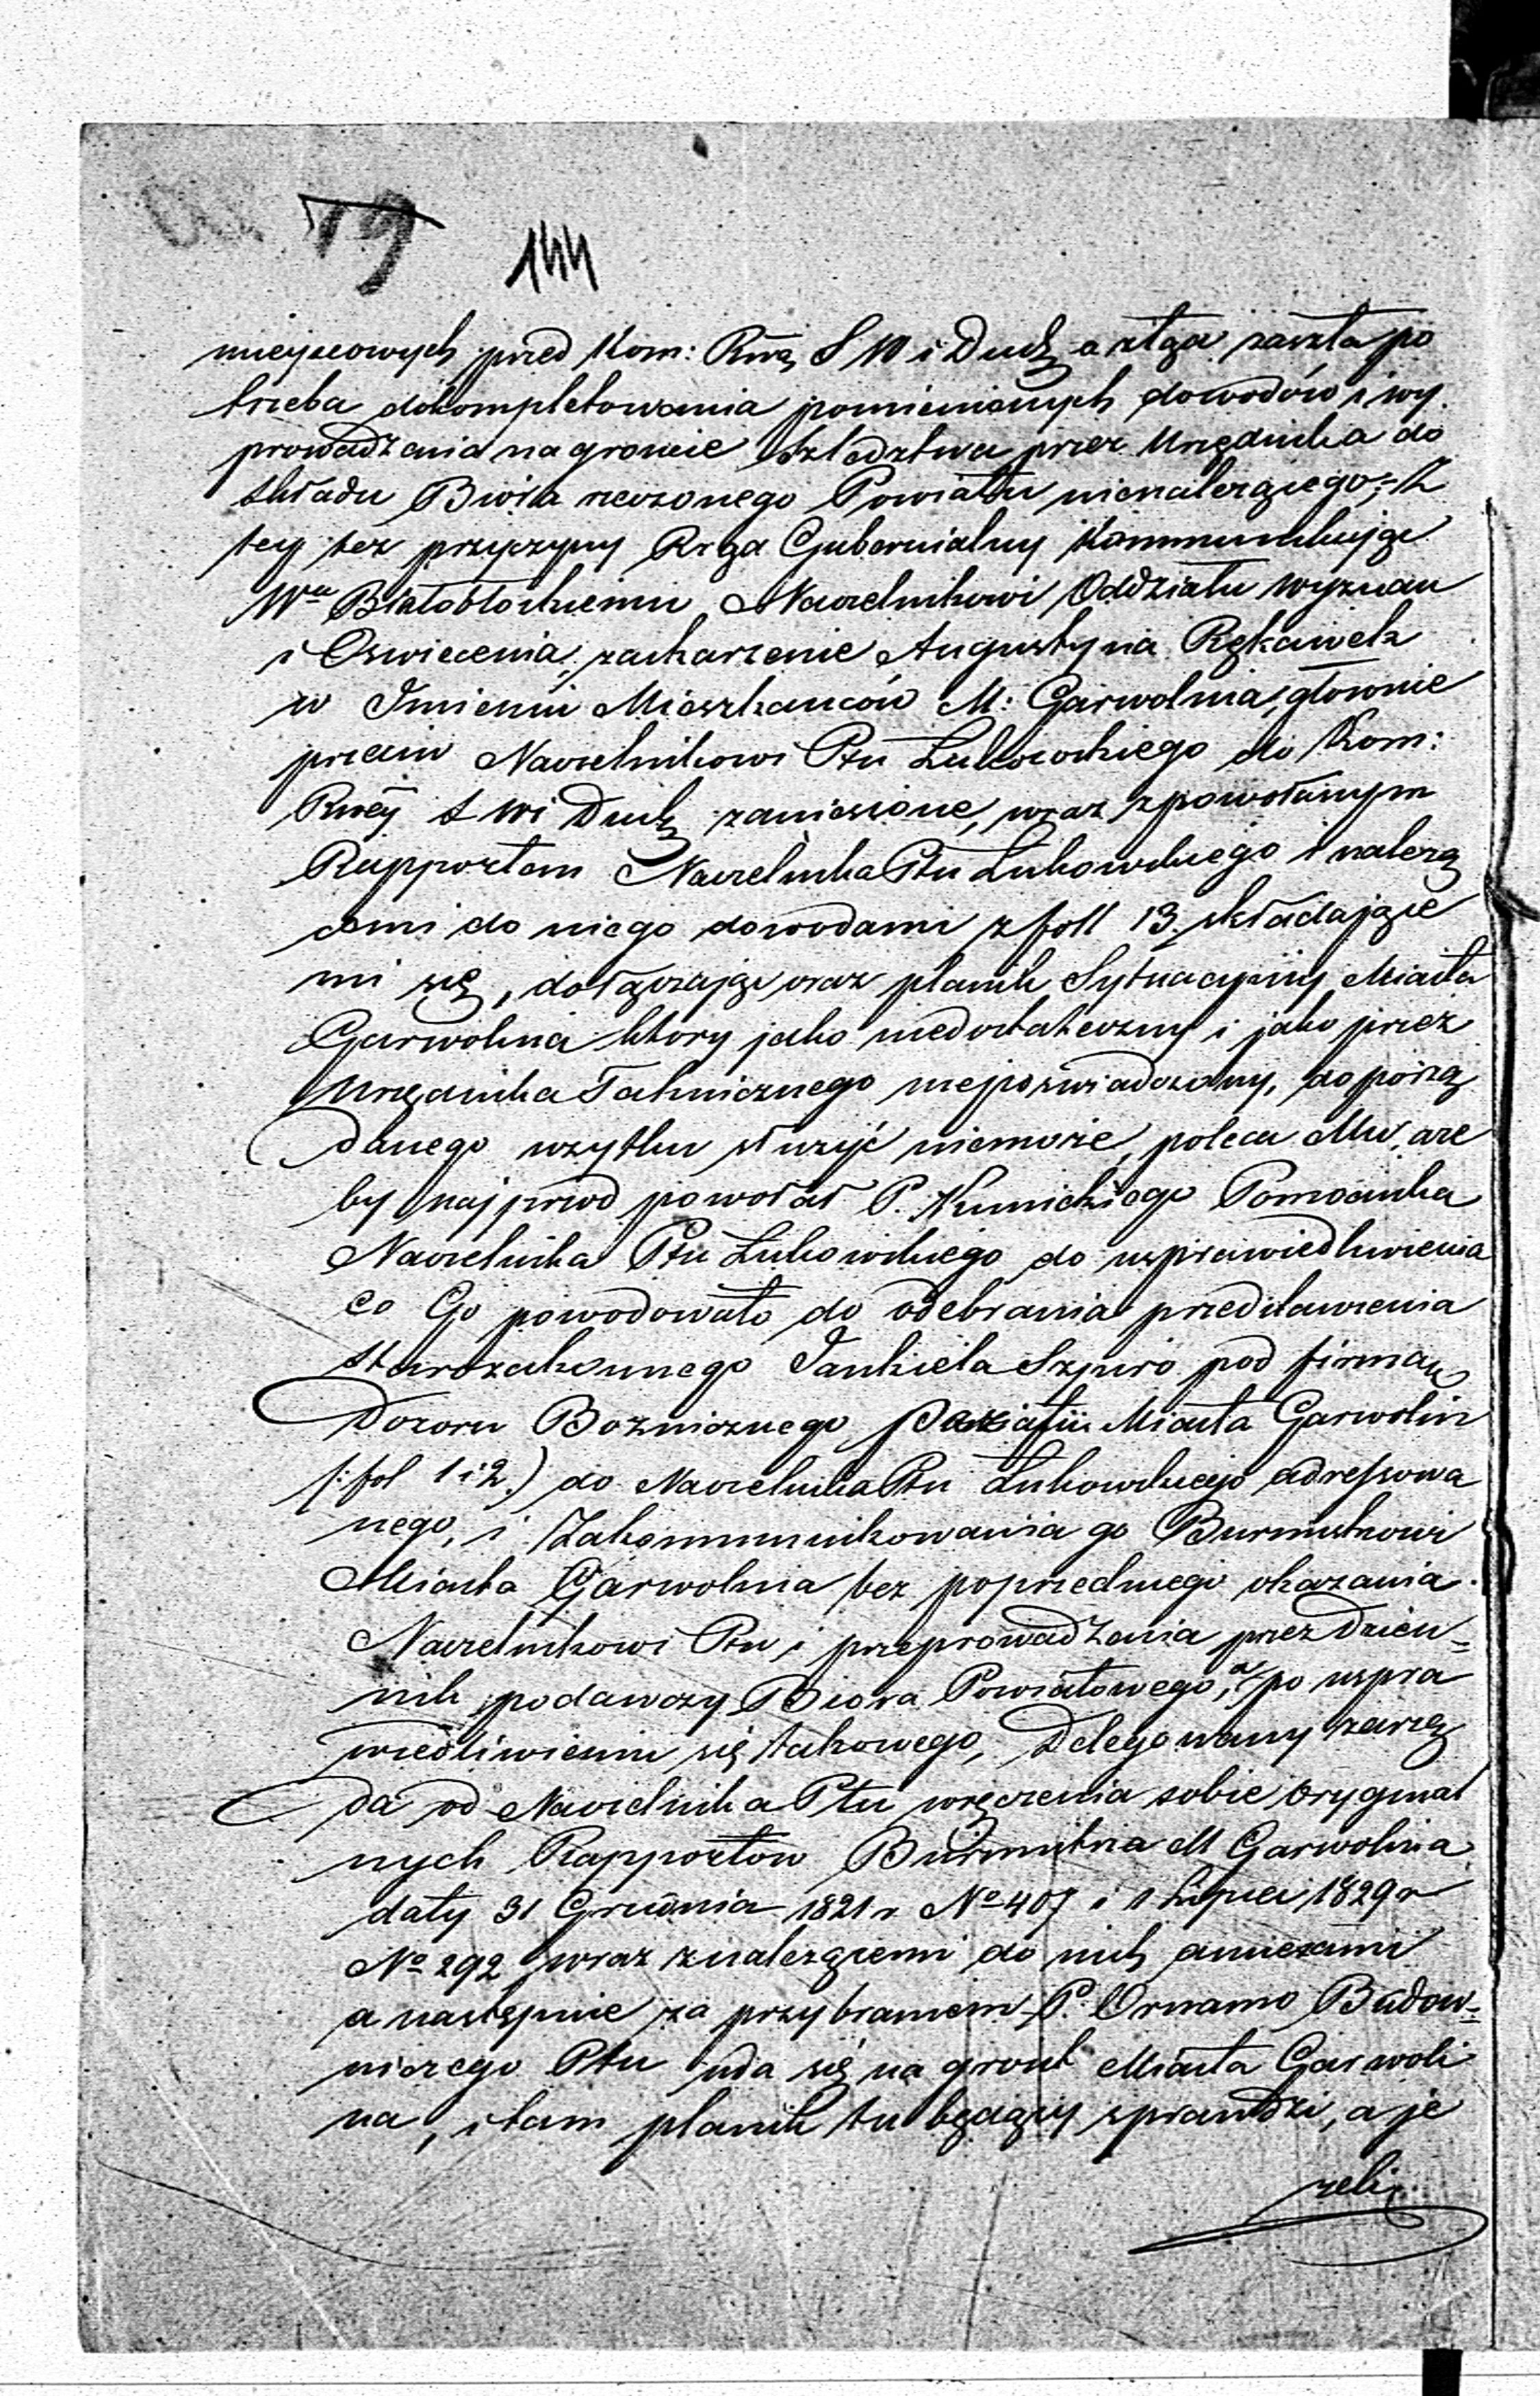 79
144
mieyscowych przed Kom: Rwą S W i Duch a ztąd zaszła po
trzeba dokompletowania pomienionych dowodów i wy
prowadzenia na gruncie Szledztwa przez Urzędnika do
składu Biura rzeczonego Powiatu nienależącego; Z
tey też przyczyny Rząd Gubernialny Kommunikując
Wu Białobłockiemu Naczelnikowi Oddziału Wyznań
i Oswiecenia, zaskarzenie Augustyna Rękawek
w Imieniu Mieszkanców M: Garwolina, głownie
przeciw Naczelnikowi Ptu Łukowskiego do Kom:
Rwey S W i Duch zaniesione, wraz z powołanym
Rapportem Naczelnika Ptu Łukowskiego i należą
cemi do niego dowodami z foll 13. składające
mi się, dołączając oraz planik Sytuacyiny Miasta
Garwolina ktory jako niedostateczny i jako przez
Urzędnika Technicznego niepoświadczony, do porzą
danego uzytku służyć niemoże, poleca Mu, aże
by najprzod powołał P. Kunickiego Pomocnika
Naczelnika Ptu Łukowskiego do usprawiedliwienia
co Go powodowało do odebrania przedstawienia
starozakonnego Jankiela Szpiro pod firmą
Dozoru Bozniczego Miasta Garwolin
/: fol 1 i 2.) do Naczelnika Ptu Łukowskiego adressowa
nego, i Zakommunikowania go Burmistrzowi
Miasta Garwolina bez poprzedniego okazania
Naczelnikowi Ptu i przeprowadzenia przez Dzien=
nik podawczy Biora Powiatowego, a po uspra
wiedliwieniu się takowego, Delegowany zarzą
da od Naczelnika Ptu wręczenia sobie orygınal
nych Rapportow Burmistrza M Garwolina
daty 31 Grudnia 1821 r. No 407 i 1 Lipca 1829 r
No 292 wraz z należącemi do nich annexami
a następnie za przybraniem P. Ornamo Budow=
niczego Ptu uda się na grunt Miasta Garwoli
na, i tam planik tu będący sprawdzi, a je
zeli